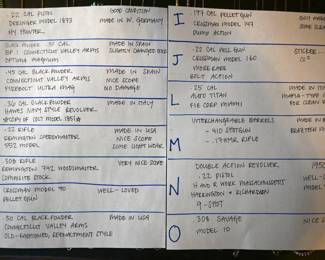 .22 CAL PISTOL GOOD CONDITION
DERRINGER MODEL 1873 MADE IN W. GERMANY
HY HUNTER
BLACK POWDER .50 CAL MADE IN SPAIN
BP 1 CONNECTICUT VALLEY ARMS SLIGHTLY DAMAGED
MAGNUM
.45 CAL BLACK POWDER MADE IN SPAIN
CONNECTICUT VALLEY ARMS NICE SCOPE
FIREBOLT ULTRA MAG NO DAMAGE
.36 CAL BLACK POWDER MADE IN ITALY
HAWES NAVY STYLE REVOLVER
☆COPY OF COLT MODEL 1851☆
.22 RIFLE MADE IN USA
REMINGTON SPEEDMASTER NICE SCOPE
552 MODEL SOME LIGHT WEAR
308 RIFLE VERY NICE SCOPE
REMINGTON 742 WOODSMASTER
COMPOSITE STOCK
CROSSMAN MODEL 90 WELL-LOVED
PELLET GUN
.50 CAL BLACK POWDER MADE IN USA
CONNECTICUT VALLEY ARMS
OLD-FASHIONED, REENACTMENT STYLE
I
.177 CAL PELLET GUN
CROSSMAN MODEL 147
PUMP ACTION
J
.22 CAL PELL GUN STICKERS
CROSSMAN MODEL 160
MORE RARE
BOLT ACTION
L
.25 CAL MADE
ASTRO TITAN MAFIA-TYPE
FIE CORP MIAMI FOR CLEAN
M
INTERCHANGEABLE BARRELS MADE IN
- 410 SHOTGUN
- .17HMR RIFLE
N
DOUBLE ACTION REVOLVER 195
.22 PISTOL WELL-
H AND R WORK MASSACHUSETTS
HARRINGTON & RICHARDSON MODEL
9-SHOT
O
.308 SAVAGE NICE
MODEL 10